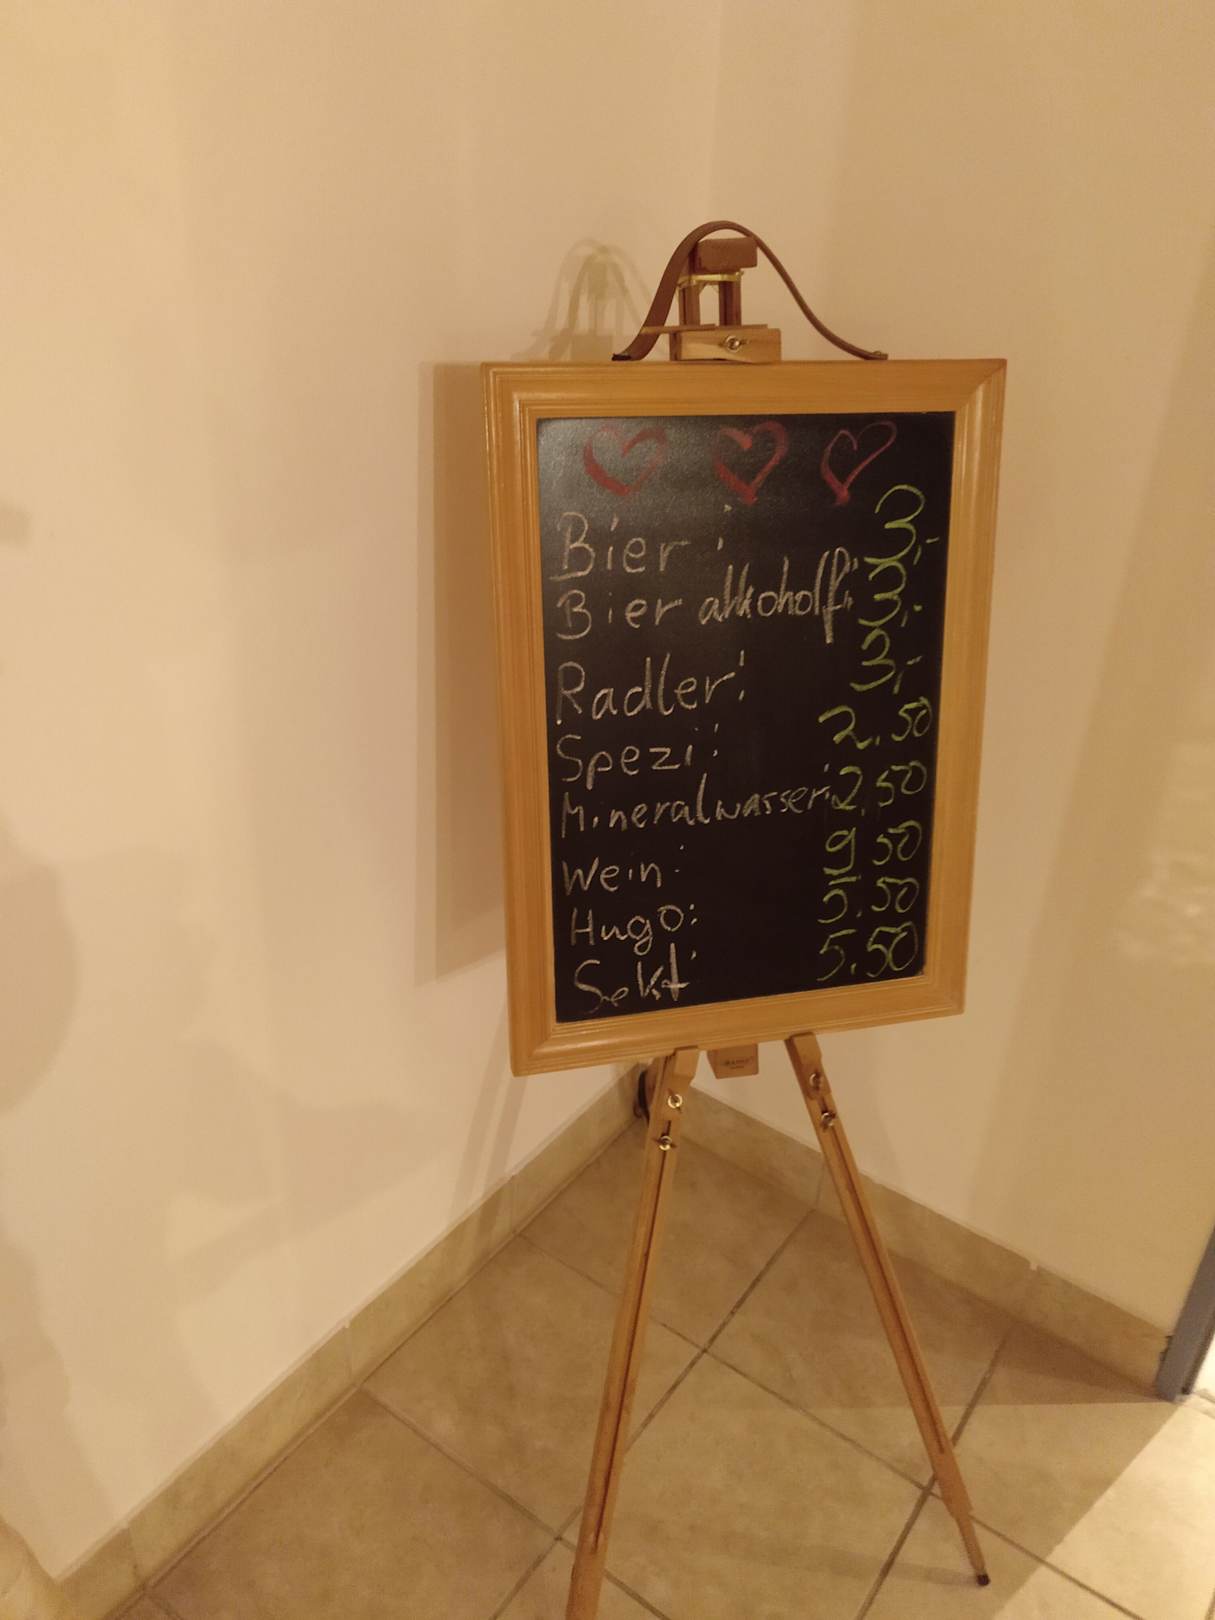 Bier: 3,-
Bier alkoholf: 3,-
Radler: 3,-
Spezi: 2.50
Mineralwasser: 2.50
Wein: 50
Hugo: 5.50
Sekt: 5.50